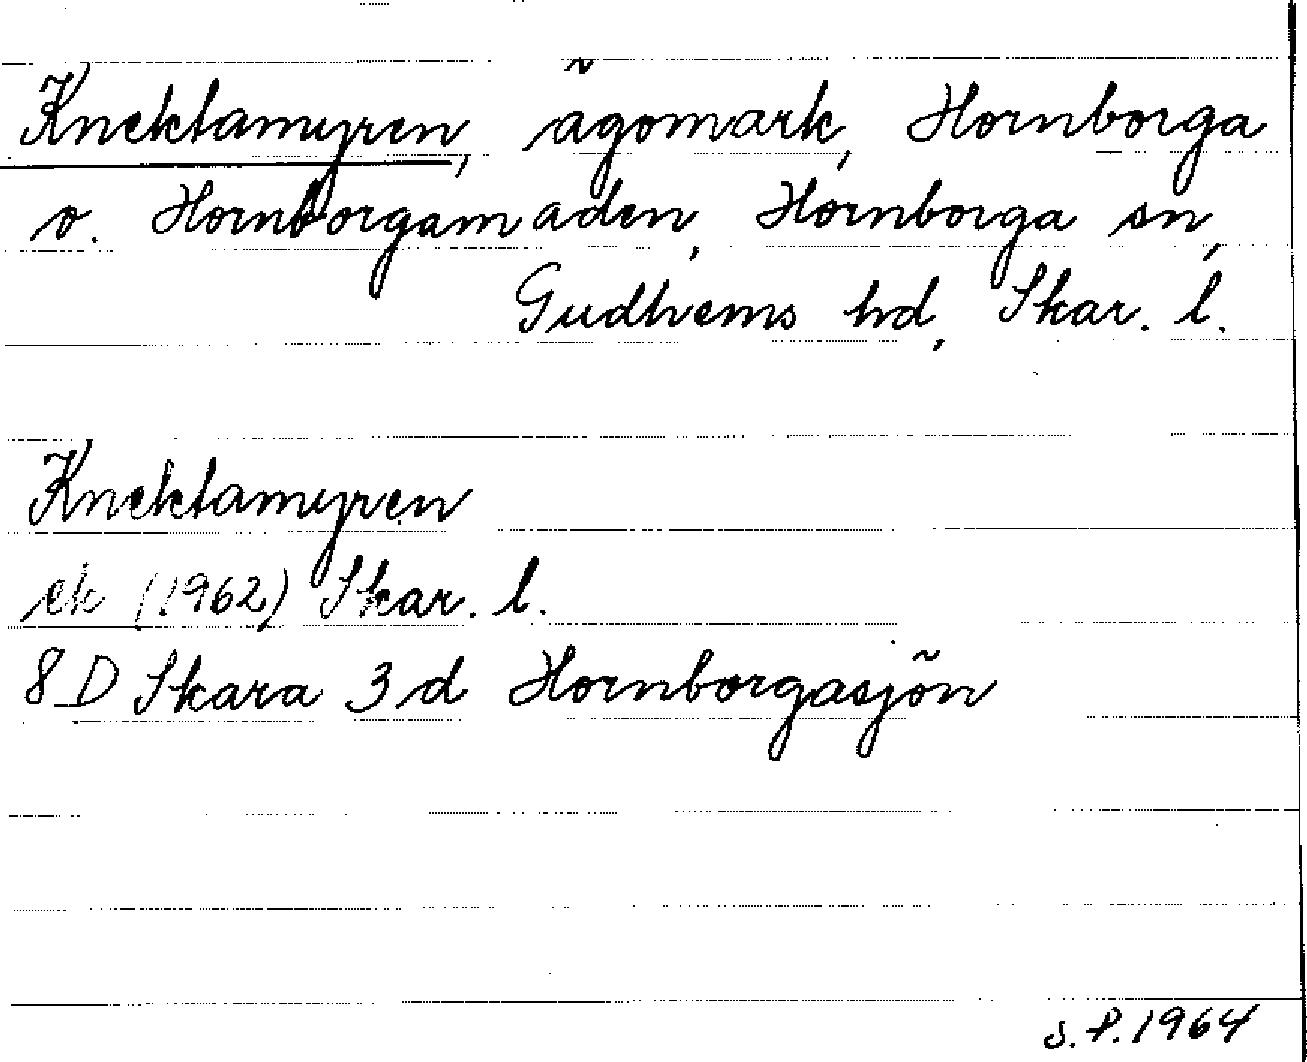 Knektamyren, ägomark, Hornborga
o. Hornborgamaden, Hornborga sn,
Gudhems hd, Skar. l.
Knektamyren
ek (1962) Skar. l.
8 D Skara 3 d Hornborgasjön
S.P. 1964